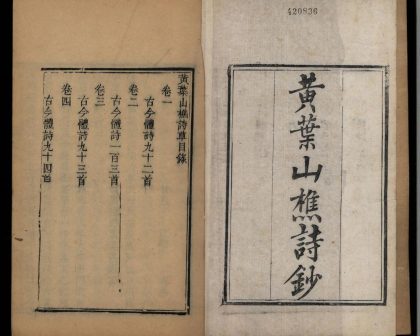 420836
黃葉山樵詩鈔
黃葉山樵詩草目錄
卷一
古今體詩九十二首
卷二
古今體詩一百三首
卷三
古今體詩九十三首
卷四
古今體詩九十四首